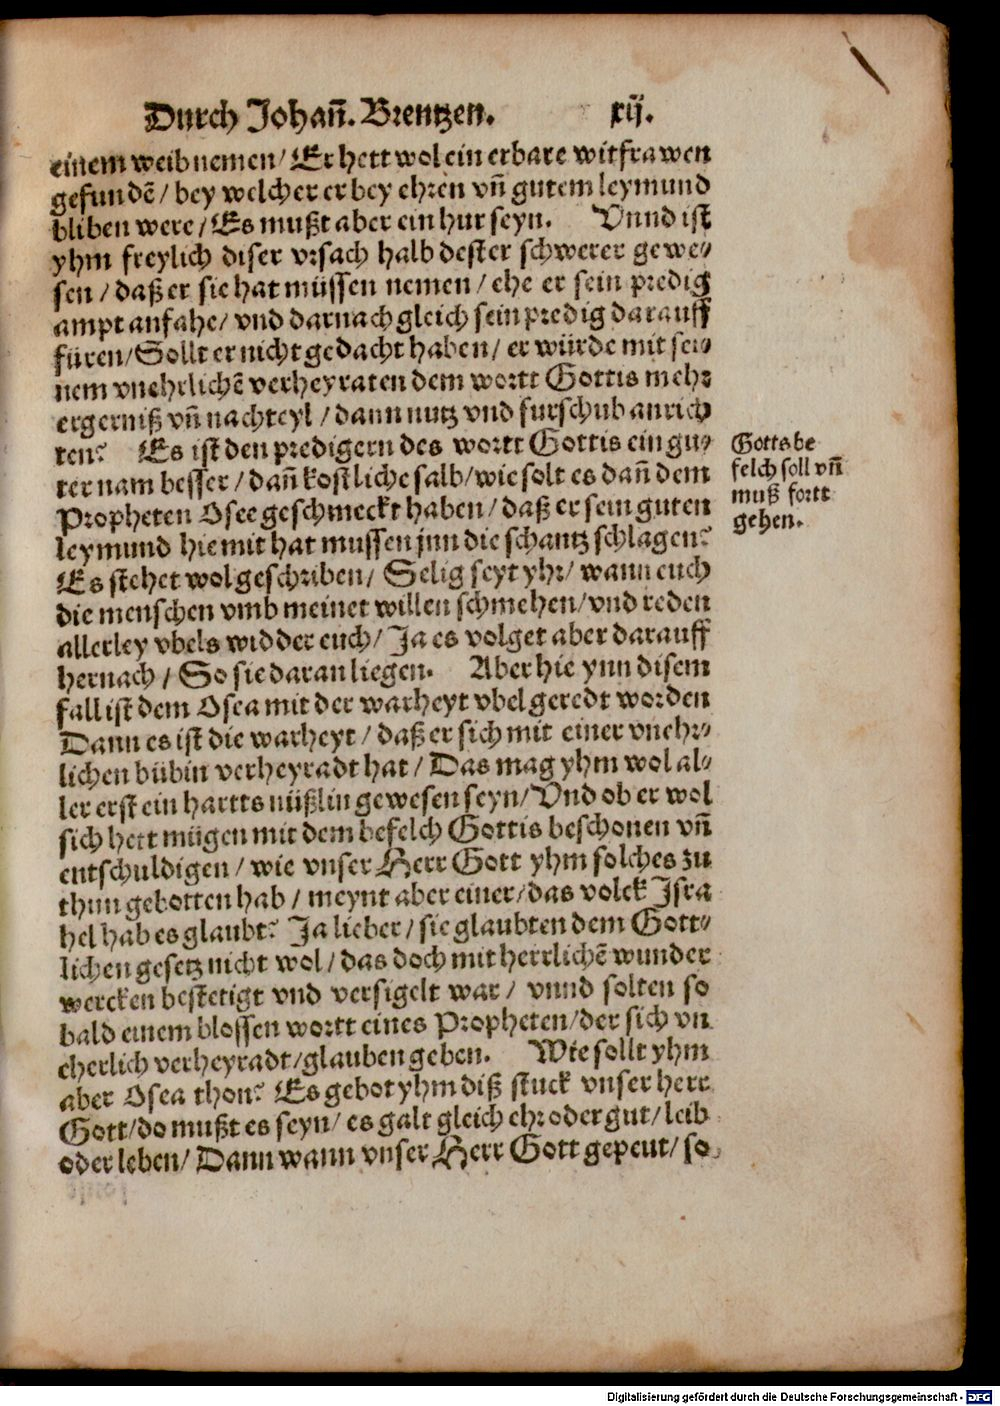 Durch Johañ. Brentzen. xij.
einem weib nemen / Er hett wol ein erbare witfrawen
gefundē / bey welcher er bey ehren vñ gutem leymund
bliben were / Es mußt aber ein hur seyn. Vnnd ist
yhm freylich diser vrsach halb dester schwerer gewe-
sen / daß er sie hat müssen nemen / ehe er sein predig
ampt anfahe / vnd darnach gleich sein predig darauff
füren / Sollt er nicht gedacht haben / er würde mit sei-
nem vnehrlichē verheyraten dem wortt Gottis mehr
ergerniß vñ nachteyl / dann nutz vnd furschub anrich
ten? Es ist den predigern des wortt Gottis ein gu-
ter nam besser / dañ kostliche salb / wie solt es dañ dem
Propheten Osee geschmeckt haben / daß er sein guten
leymund hiemit hat mussen jnn die schantz schlagen?
Es stehet wol geschriben / Selig seyt yhr / wann euch
die menschen vmb meinet willen schmehen / vnd reden
allerley vbels widder euch / Ja es volget aber darauff
hernach / So sie daran liegen. Aber hie ynn disem
fall ist dem Osea mit der warheyt vbel geredt worden
Dann es ist die warheyt / daß er sich mit einer vnehr-
lichen bübin verheyradt hat / Das mag yhm wol al-
ler erst ein hartts nüßlin gewesen seyn / Vnd ob er wol
sich hett mügen mit dem befelch Gottis beschonen vñ
entschuldigen / wie vnser Herr Gott yhm solches zu
thun gebotten hab / meynt aber einer / das volck Isra
hel hab es glaubt? Ja lieber / sie glaubten dem Gott-
lichen gesetz nicht wol / das doch mit herrlichē wunder
wercken bestetigt vnd versigelt war / vnnd solten so
bald einem blossen wortt eines Propheten / der sich vn
eherlich verheyradt / glauben geben. Wie sollt yhm
aber Osea thon? Es gebot yhm diß stuck vnser herr
Gott / do mußt es seyn / es galt gleich ehr oder gut / leib
oder leben / Dann wann vnser Herr Gott gepeut / so
Gotts be
felch soll vñ
muß fortt
gehen.
Digitalisierung gefördert durch die Deutsche Forschungsgemeinschaft - DFG